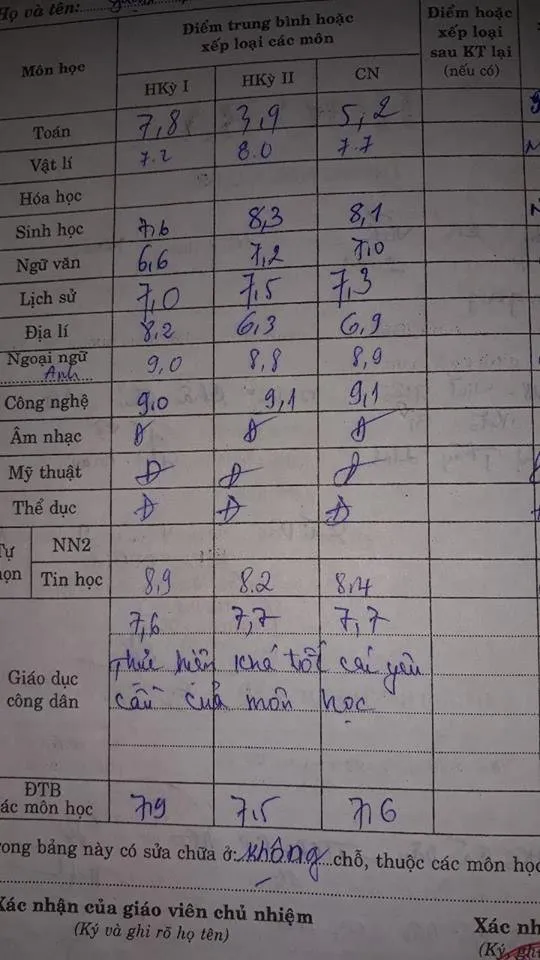 Họ và tên:
Môn học
Điểm trung bình hoặc
xếp loại các môn
Điểm hoặc
xếp loại
sau KT lại
(nếu có)
HKỳ I HKỳ II CN
Toán 7,8 3,9 5,2
Vật lí 7.2 8.0 7.7
Hóa học
Sinh học 7,6 8,3 8,1
Ngữ văn 6,6 7,2 7,0
Lịch sử 7,0 7,5 7,3
Địa lí 8.2 6,3 6,9
Ngoại ngữ 9,0 8,8 8,9
Anh
Công nghệ 9,0 9,1 9,1
Âm nhạc Đ Đ Đ
Mỹ thuật Đ Đ Đ
Thể dục Đ Đ Đ
NN2
Tin học 8,9 8.2 8,4
Giáo dục
công dân
7,6 7,7 7,7
Thực hiện khá tốt các yêu
cầu của môn học
ĐTB
các môn học 7,9 7,5 7,6
Trong bảng này có sửa chữa ở: không chỗ, thuộc các môn học
Xác nhận của giáo viên chủ nhiệm
(Ký và ghi rõ họ tên)
Xác nh
(Ký, ghi